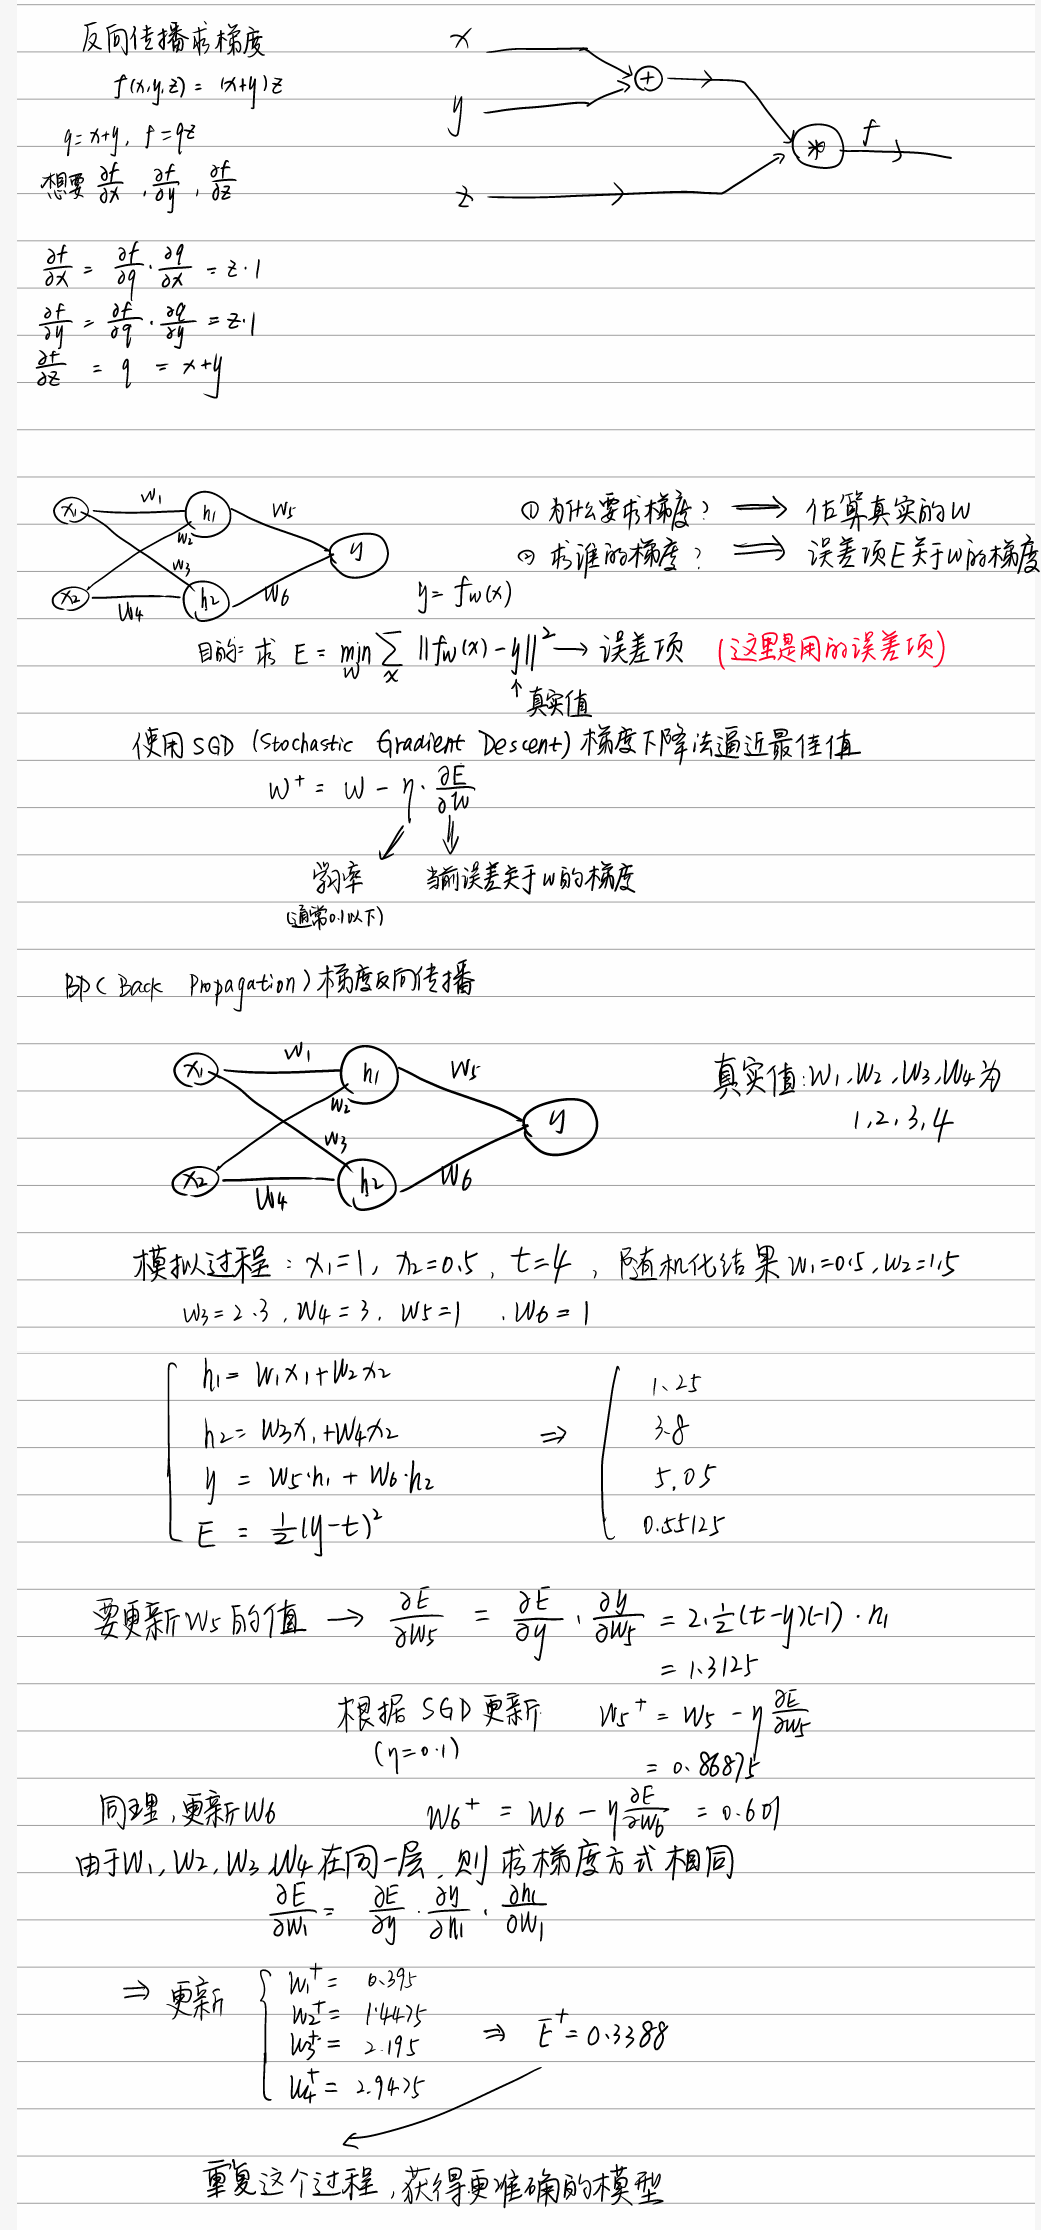 反向传播求梯度
f(x,y,z) = (x+y)z
q=x+y, f=qz
想要 ∂f/∂x , ∂f/∂y , ∂f/∂z
x
y
z
+
*
f
∂f/∂x = ∂f/∂q · ∂q/∂x = z·1
∂f/∂y = ∂f/∂q · ∂q/∂y = z·1
∂f/∂z = q = x+y
x1 w1 h1 w5
w2
w3
y
x2 w4 h2 w6
y = fw(x)
① 为什么要求梯度? ⟹ 估算真实的w
② 求谁的梯度? ⟹ 误差项E关于w的梯度
目的: 求 E = min_w ∑_x ||fw(x) - y||² → 误差项 (这里是用的误差项)
↑真实值
使用SGD (Stochastic Gradient Descent) 梯度下降法逼近最佳值
w⁺ = w - η · ∂E/∂w
学习率 当前误差关于w的梯度
(通常0.1以下)
BP( Back Propagation) 梯度反向传播
x1 w1 h1 w5
w2
w3
y
x2 w4 h2 w6
真实值:w1,w2,w3,w4为
1,2,3,4
模拟过程: x1=1, x2=0.5, t=4, 随机化结果w1=0.5,w2=1.5
w3=2.3, w4=3, w5=1, w6=1
h1= w1x1+w2x2 1.25
h2= w3x1+w4x2 ⇒ 3.8
y = w5·h1 + w6·h2 5.05
E = ½(y-t)² 0.55125
要更新w5的值 → ∂E/∂w5 = ∂E/∂y · ∂y/∂w5 = 2·½(t-y)(-1)·h1
= 1.3125
根据 SGD 更新 w5⁺ = w5 - η ∂E/∂w5
(η=0.1)
= 0.86875
同理,更新w6 w6⁺ = w6 - η ∂E/∂w6 = 0.601
由于w1,w2,w3,w4在同一层,则求梯度方式相同
∂E/∂w1 = ∂E/∂y · ∂y/∂h1 · ∂h1/∂w1
⇒ 更新
w1⁺ = 0.395
w2⁺ = 1.4475
w3⁺ = 2.195
w4⁺ = 2.9475
⇒ E⁺=0.3388
重复这个过程,获得更准确的模型